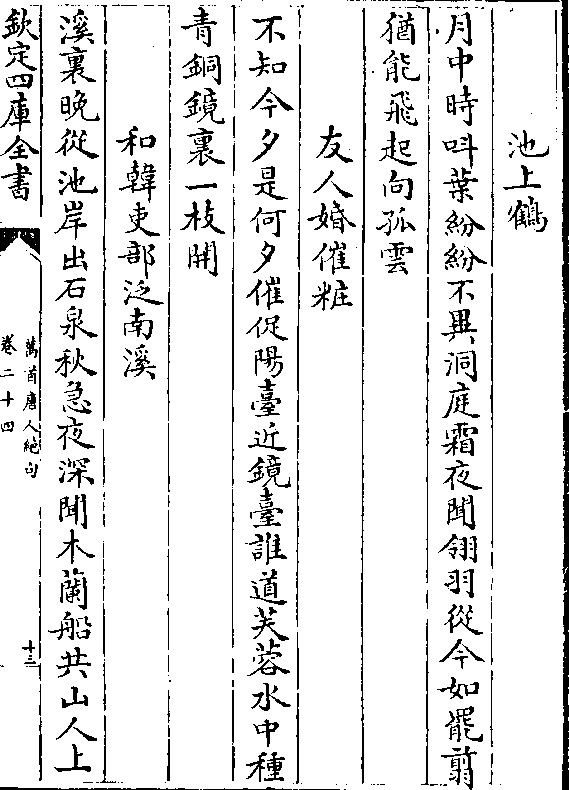 池上鶴
月中時呌葉紛紛不異洞庭霜夜聞翎羽從今如罷翦
猶能飛起向孤雲
友人婚催粧
不知今夕是何夕催促陽臺近鏡臺誰道芙蓉水中種
青銅鏡裏一枝開
和韓吏部泛南溪
溪裏晚從池岸出石泉秋急夜深聞木蘭船共山人上
欽定四庫全書
萬首唐人絶句
卷二十四
十三